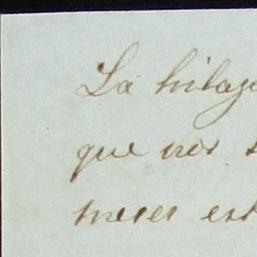 La hilaz
que nos
meses est